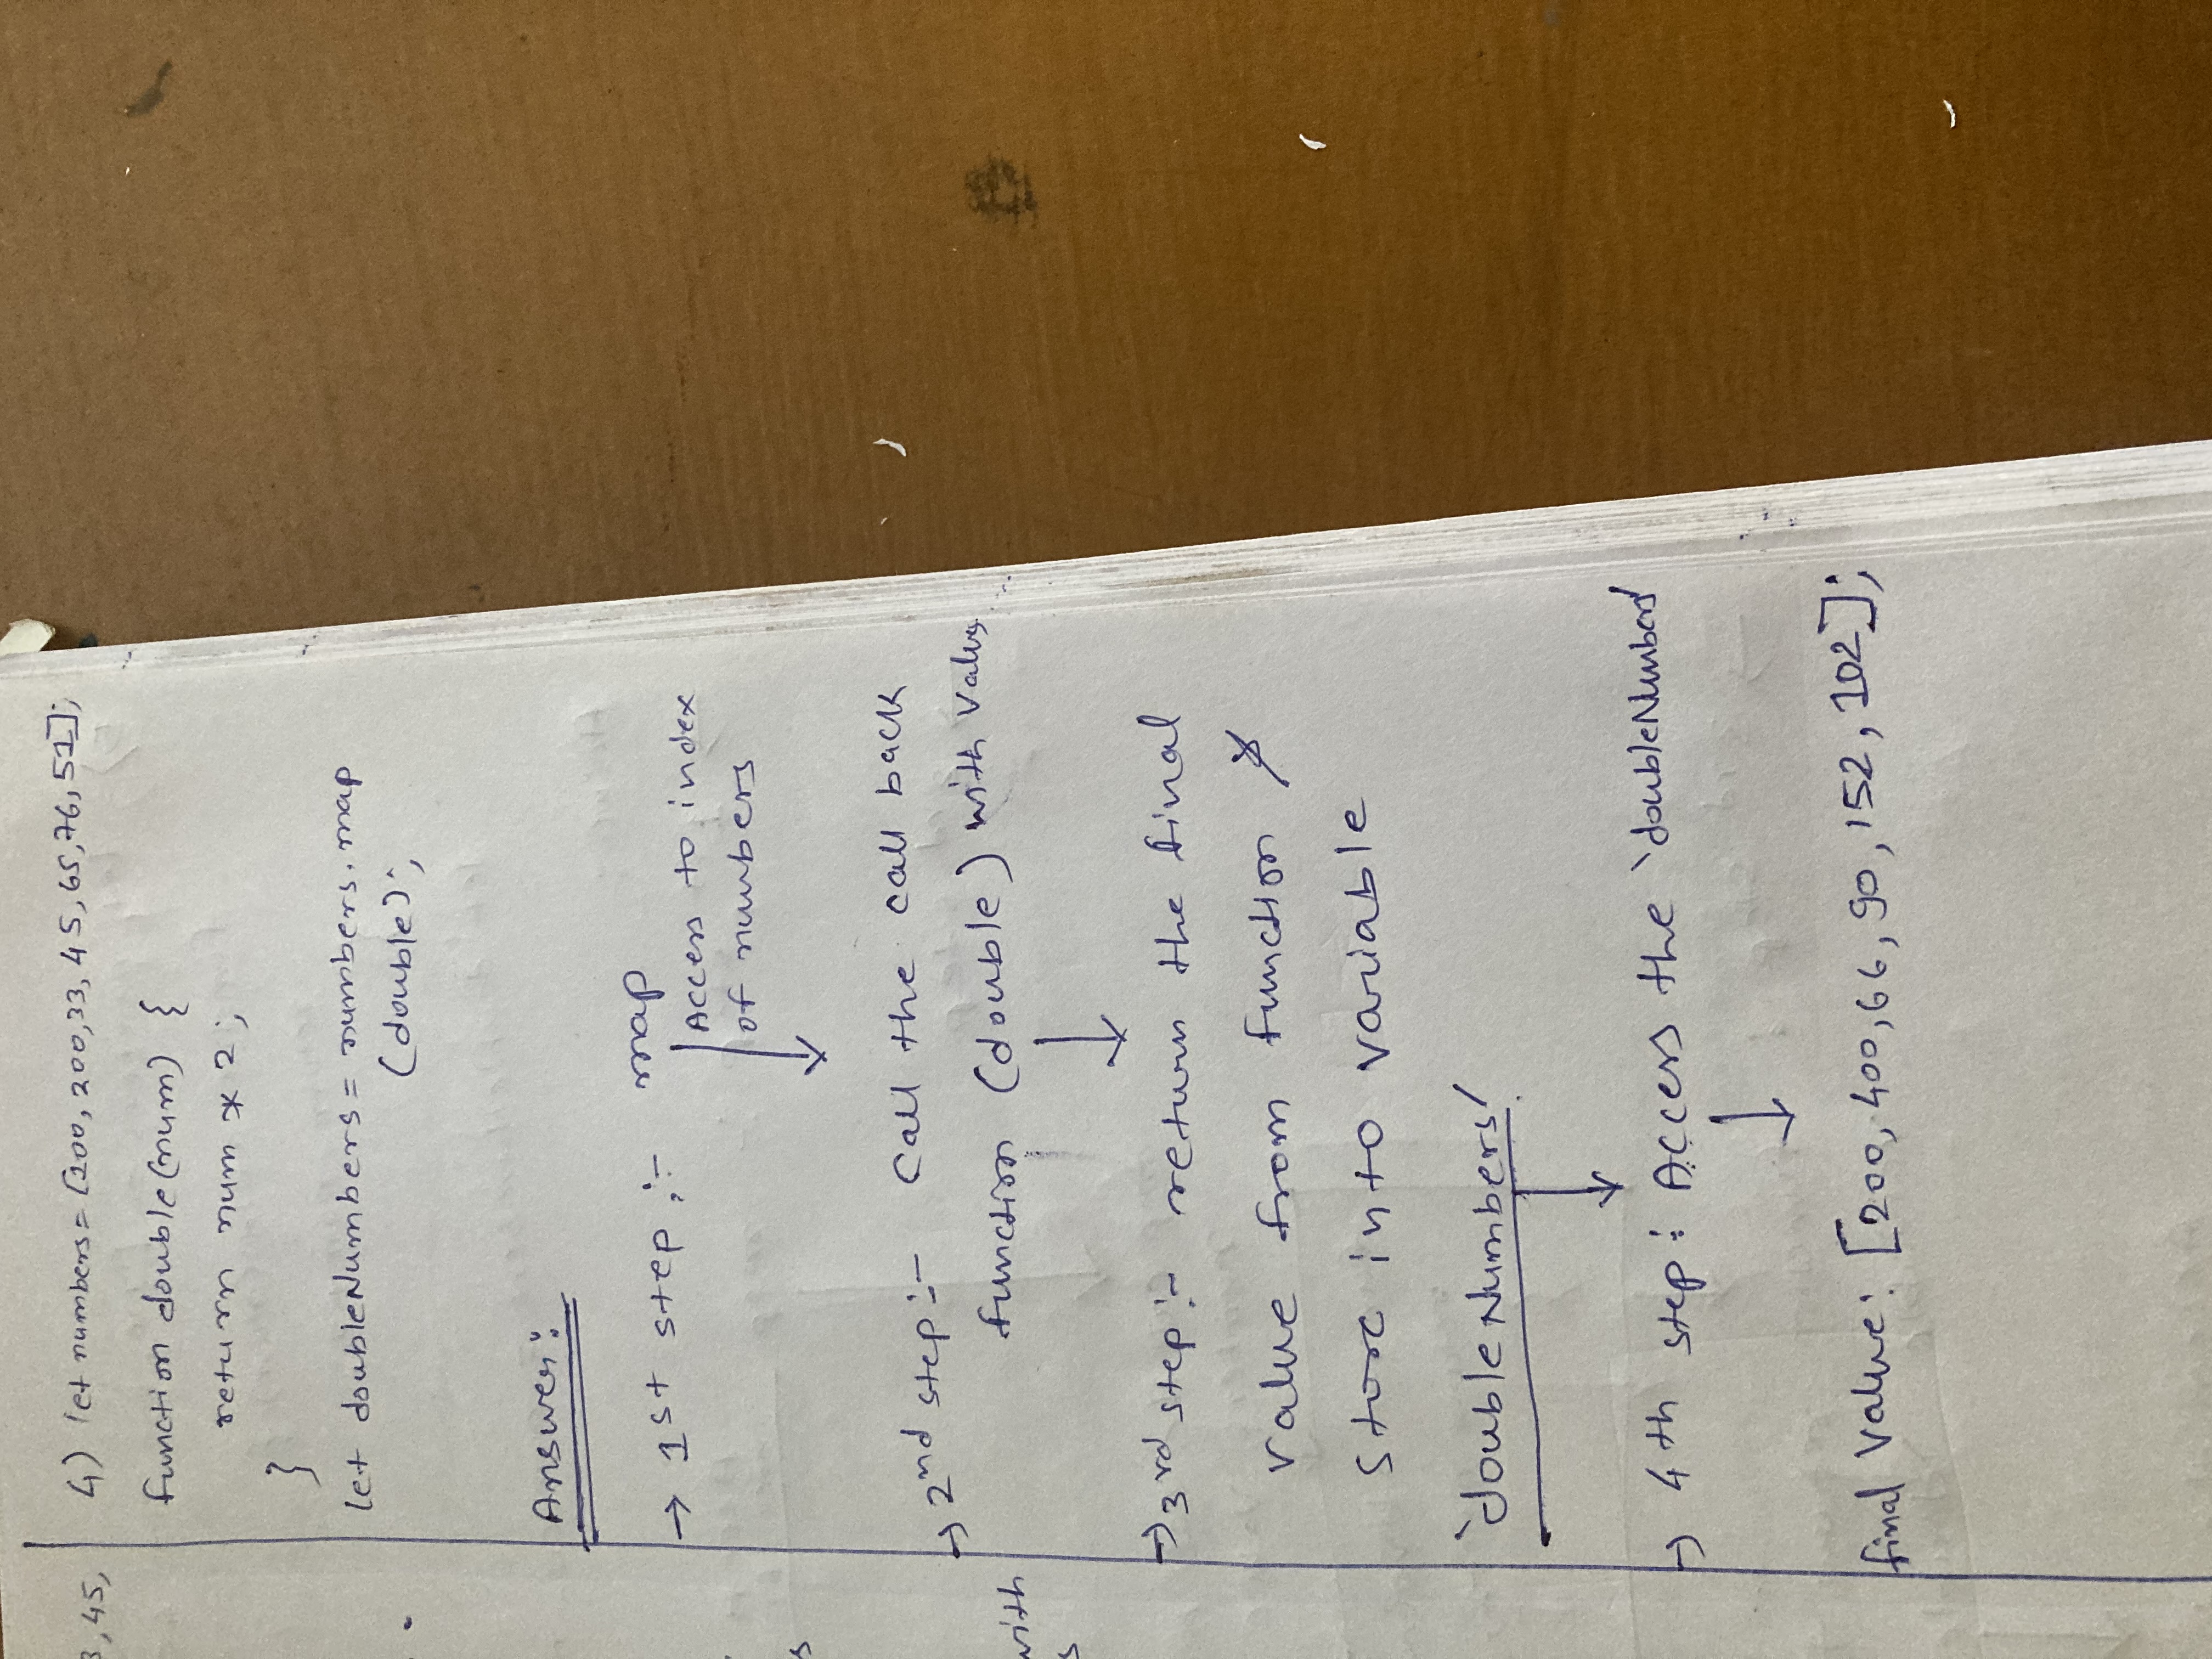 3, 45,
with
s
s
4) let numbers = [100, 200, 33, 45, 65, 76, 51];
function double(num) {
return num * 2;
}
let doubleNumbers = numbers.map
(double);
Answer:
→ 1st step :- map
Access to index
of numbers
→ 2nd step :- Call the call back
function (double) with value
→ 3rd step :- return the final
value from function &
store into variable
`doubleNumbers'
→ 4th step : Access the `doubleNumbers'
final Value: [200, 400, 66, 90, 152, 102];